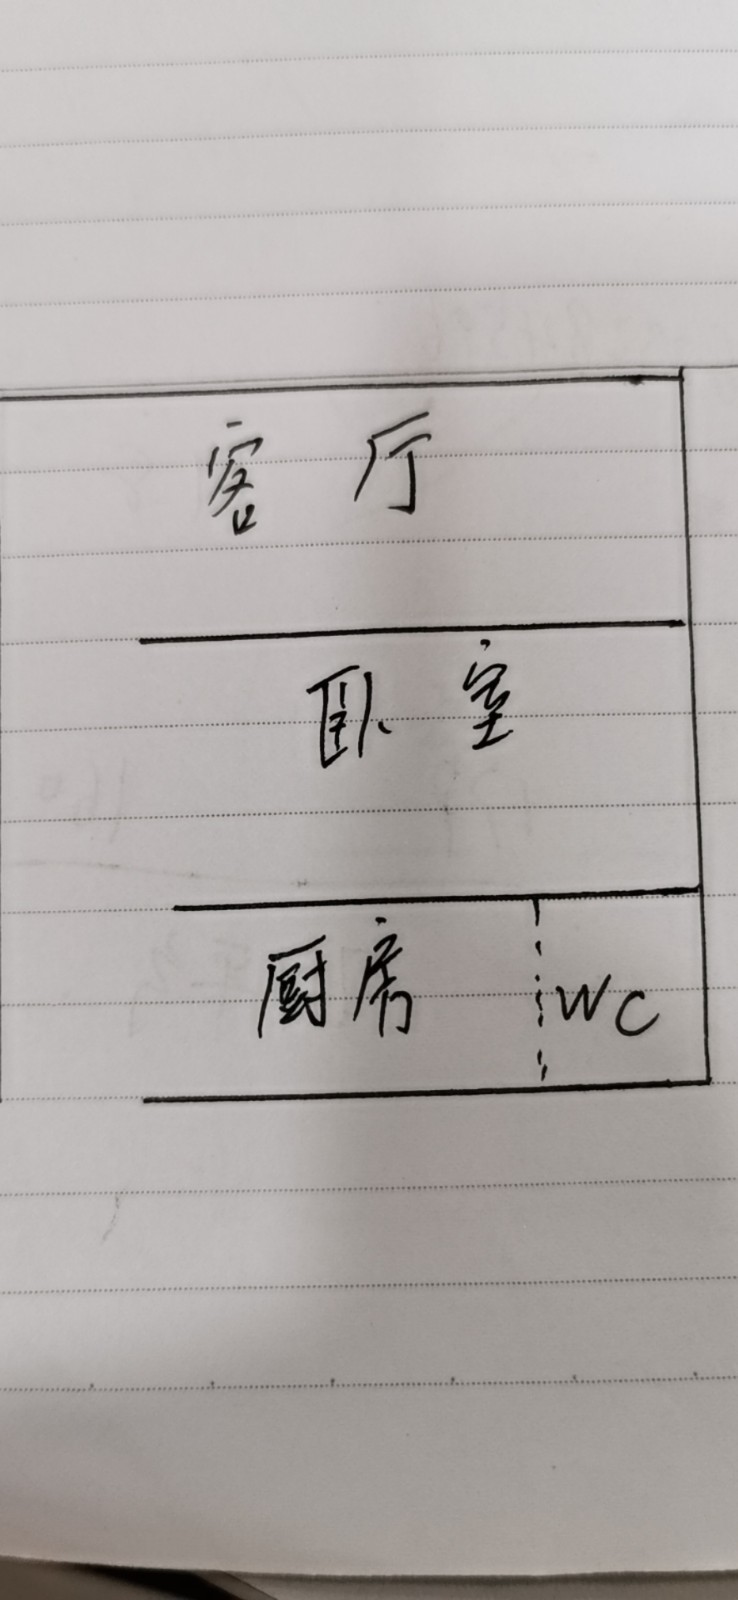 客厅
卧室
厨房 WC